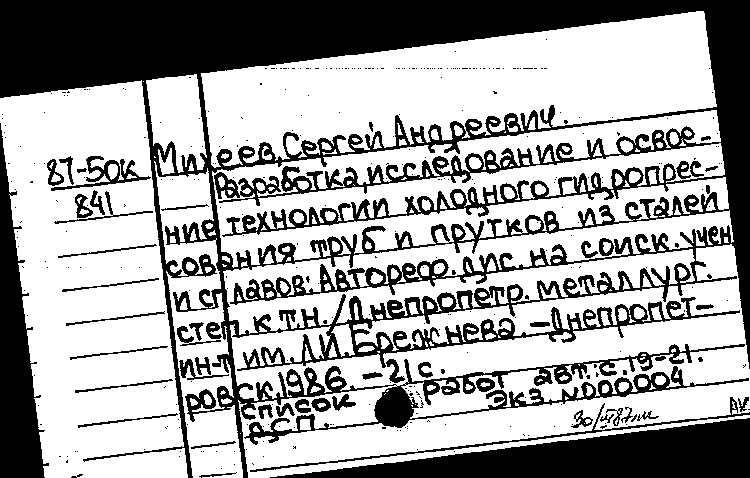 87-50к
841
Михеев, Сергей Андреевич.
Разработка, исследование и освое-
ние технологии холодного гидропрес-
сования труб и прутков из сталей
и сплавов: Автореф. дис. на соиск. учен.
степ. к.т.н. / Днепропетр. металлург.
ин-т им. Л.И. Брежнева. - Днепропет-
ровск, 1986. - 21 с.
Список работ авт.: с. 19-21.
ДСП. Экз. N000004.